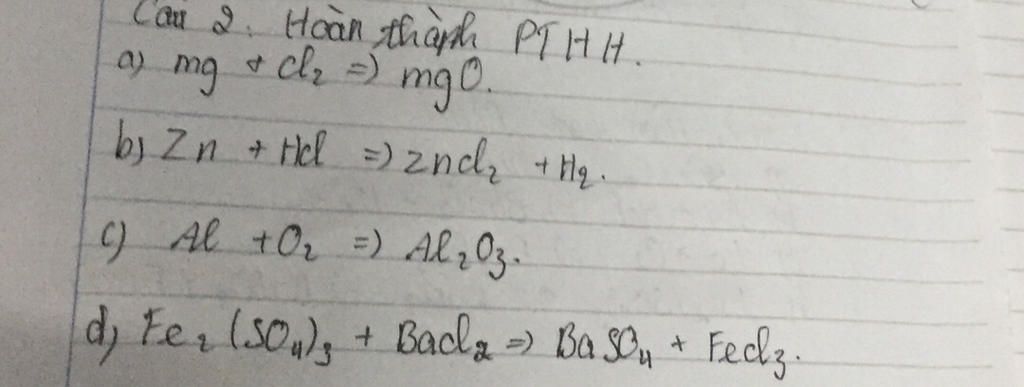 Câu 2. Hoàn thành PTHH.
a) mg + Cl₂ => mgO.
b) Zn + Hcl => zncl₂ + H₂.
c) Al + O₂ => Al₂O₃.
d) Fe₂(SO₄)₃ + Bacl₂ => BaSO₄ + Fecl₃.